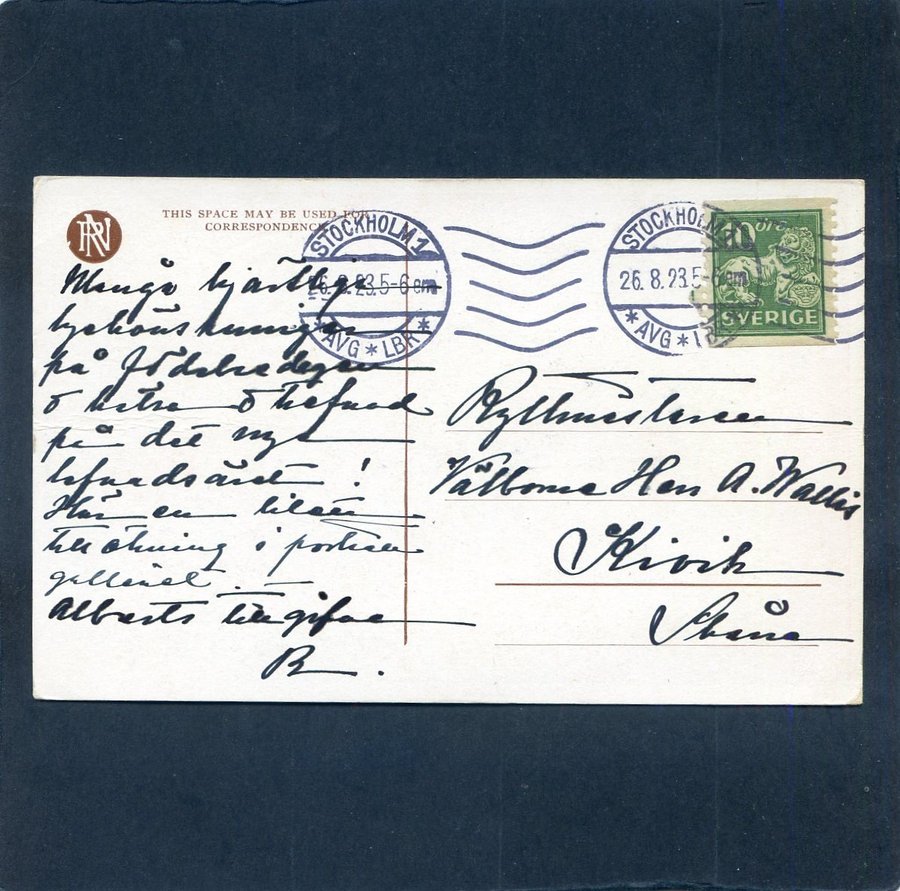 THIS SPACE MAY BE USED FOR
CORRESPONDENCE
STOCKHOLM 1
26.8.23.5-6 em
* AVG * LBR *
STOCKHOLM 1
26.8.23.5-6 em
* AVG * L
10 ÖRE
SVERIGE
Många hjärtliga
lyckönskningar
på födelsedagen
o bättre o lefnad
på det nya
lefnadsåret!
Här en liten
tillökning i porträtt
galleriet. —
Alberts tillgifne
R.
Ryttmästaren
Välborne Herr A. Wallis
Kivik
Skåne